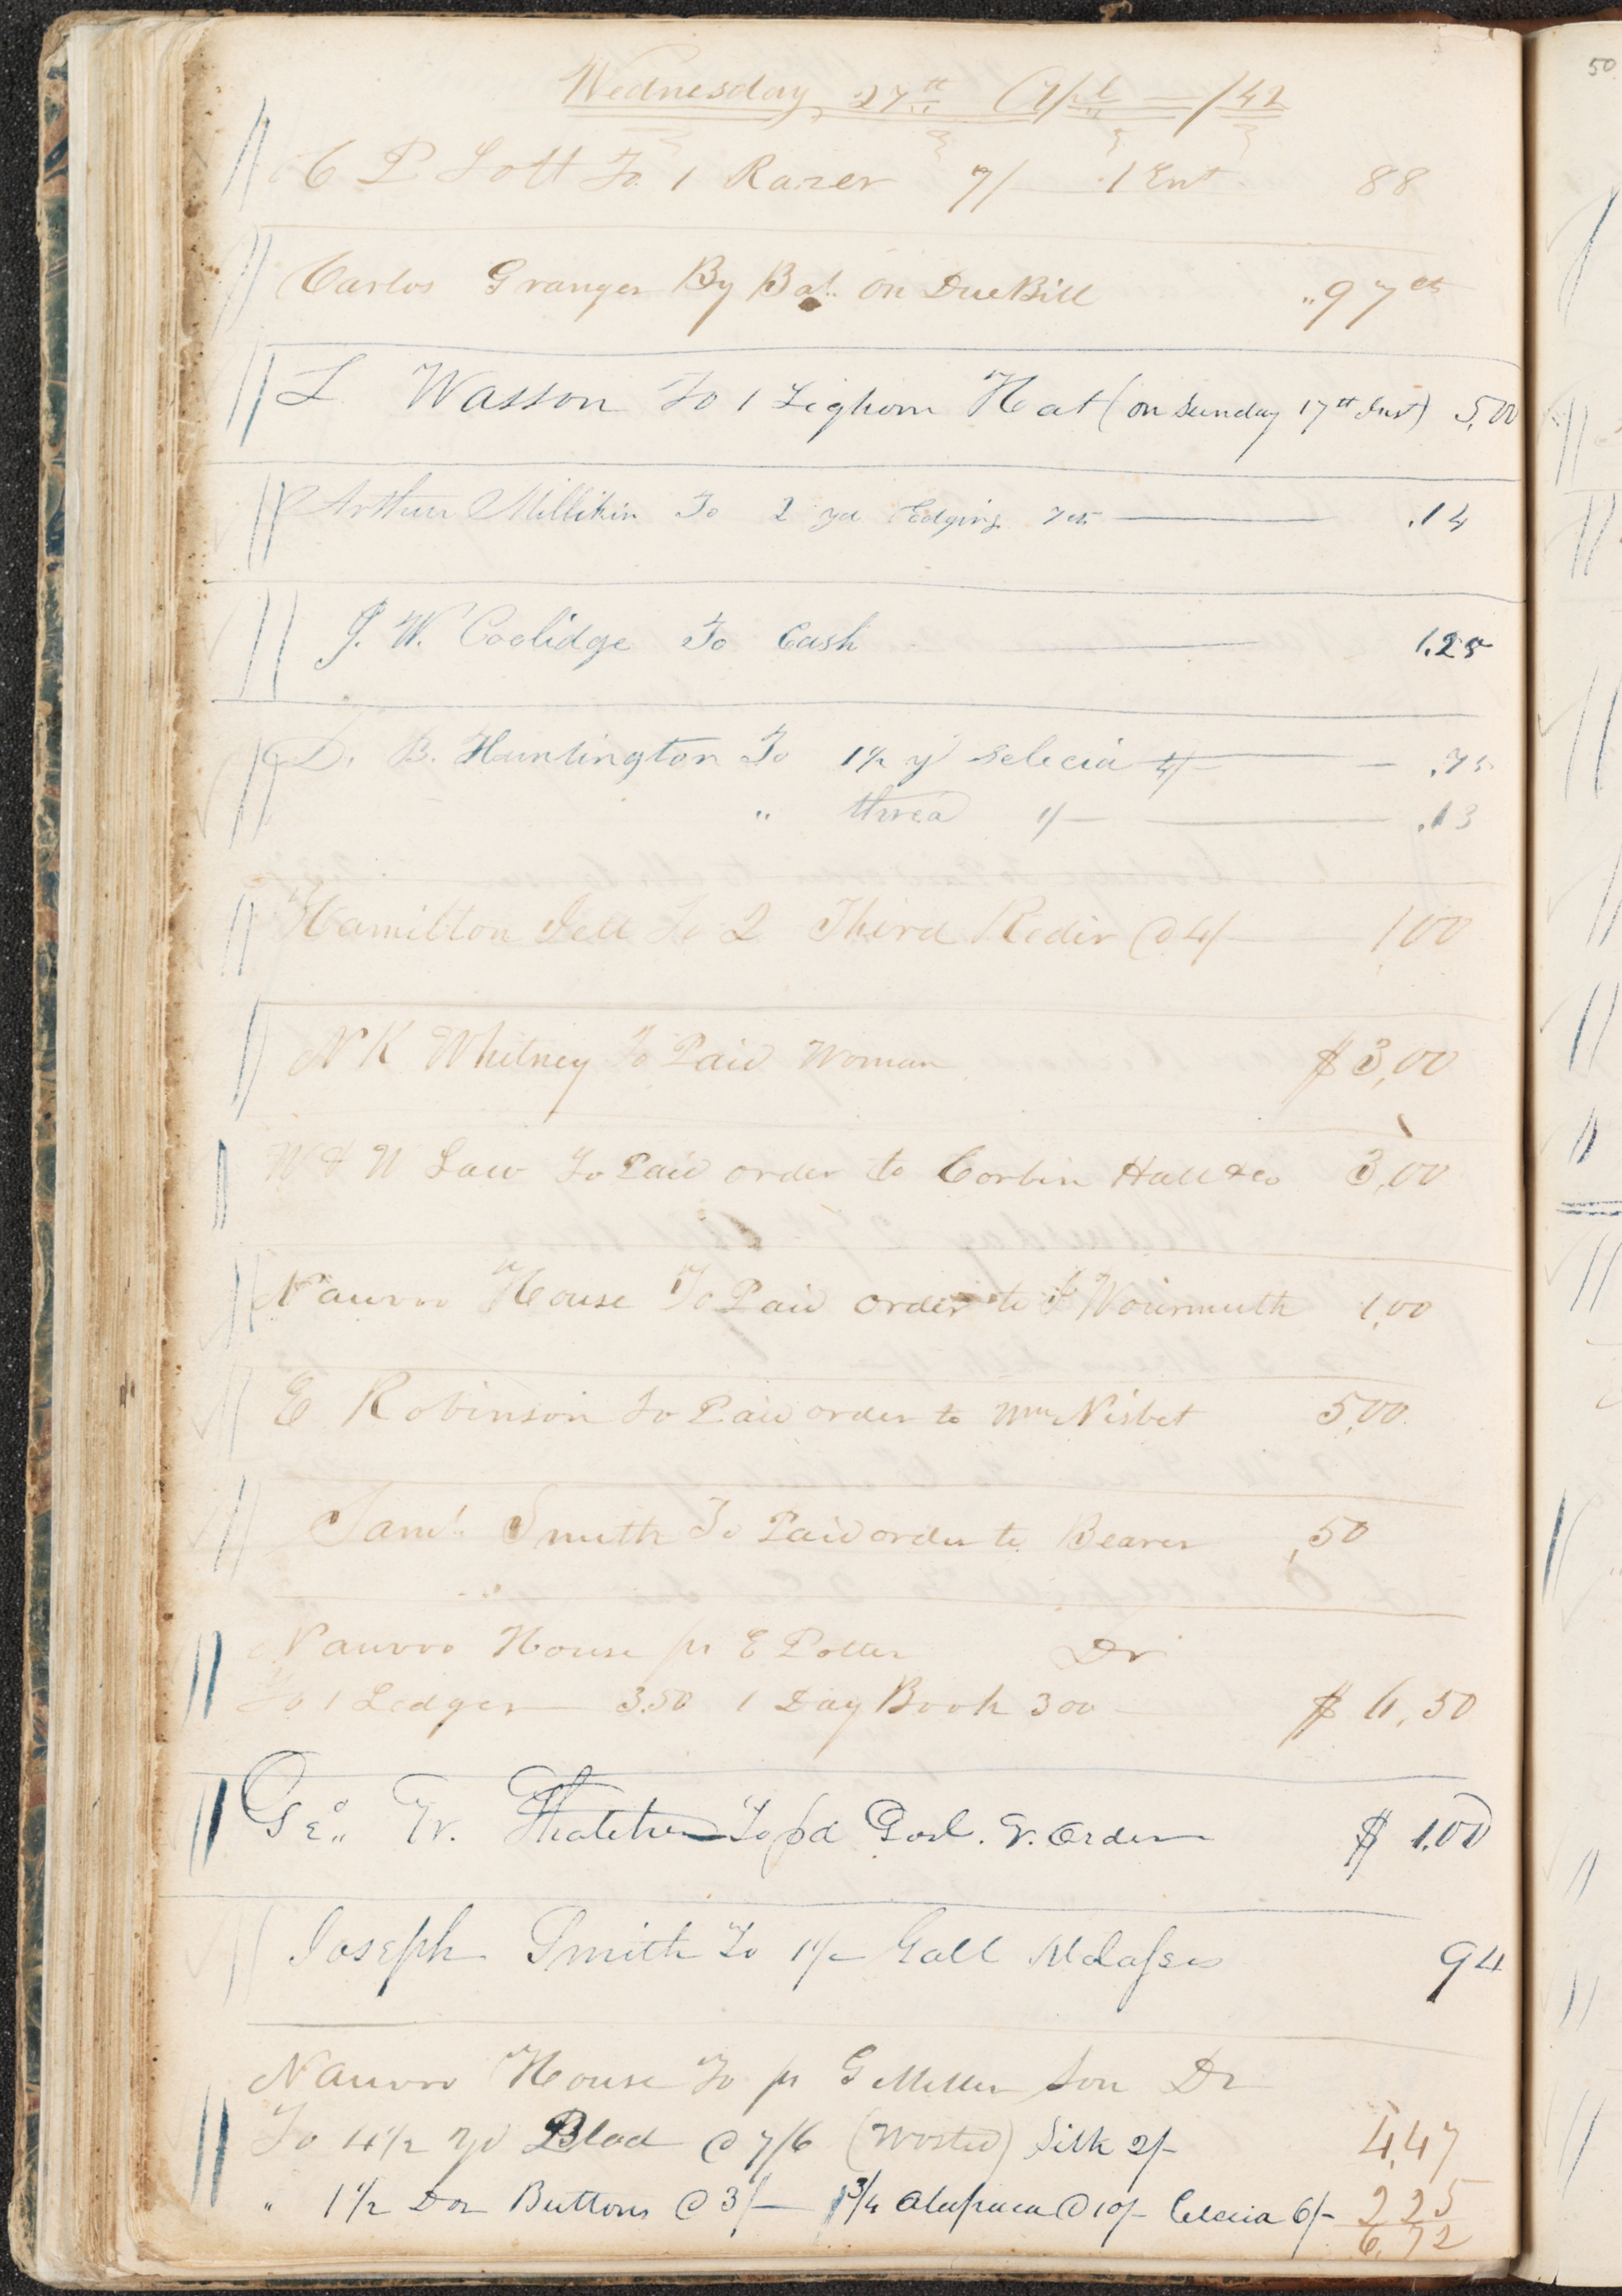 Wednesday, 27th Apl /42
C P Lott To 1 Razer 7/ 1 Ent 88
Carlos Granger By Bal. on Due Bill "97cts
L Wasson To 1 Leghorn Hat (on Sunday 17th Inst) 5,00
Arthur Millikin To 2 yd Edging 7cts .14
J. W. Coolidge To Cash 1.25
D. B. Huntington To 1 1/2 y Selecia 4/ .75
" thread 1/ .13
Hamilton Jett To 2 Third Reder @ 4/ 1,00
N K Whitney To Paid Woman $3,00
W & W Law To Paid order to Corbin Hall & Co 3,00
Nauvoo House To Paid order to 1,00
E Robinson To Paid order to Wm Nisbet 5,00
Saml. Smith To Paid order to Bearer ,50
Nauvoo House pr E Potter Dr
To 1 Ledger 3.50 1 Day Book 300 $ 6,50
Geo. W. Thatcher To pd Order $ 1.00
Joseph Smith To 1 1/2 Gall Molasses 94
Nauvoo House To pr G Miller Son Dr
To 4 1/2 yd @ 7/6 (Wosted) Silk 2/- 4,47
" 1 1/2 Doz Buttons @ 3/- 1 3/4 Alapaca @ 10/- Celecia 6/- 2 25
6,72
50